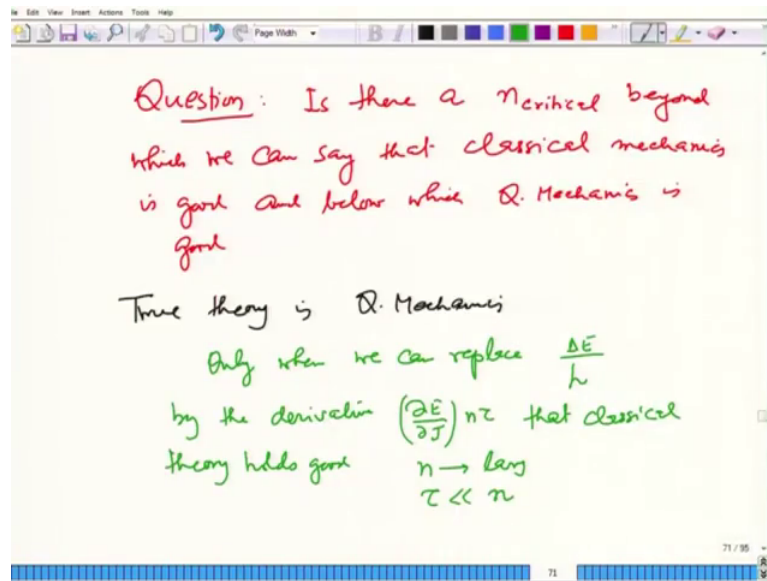 File Edit View Insert Actions Tools Help
Page Width
B I
Question: Is there a n critical beyond
which we can say that classical mechanics
is good and below which Q. Mechanics is
good
True theory is Q. Mechanics
Only when we can replace ΔE/h
by the derivative (∂E/∂J) nτ that classical
theory holds good n → large
τ << n
71 / 95
71